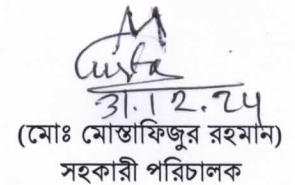 31.12.24
(মোঃ মোস্তাফিজুর রহমান)
সহকারী পরিচালক